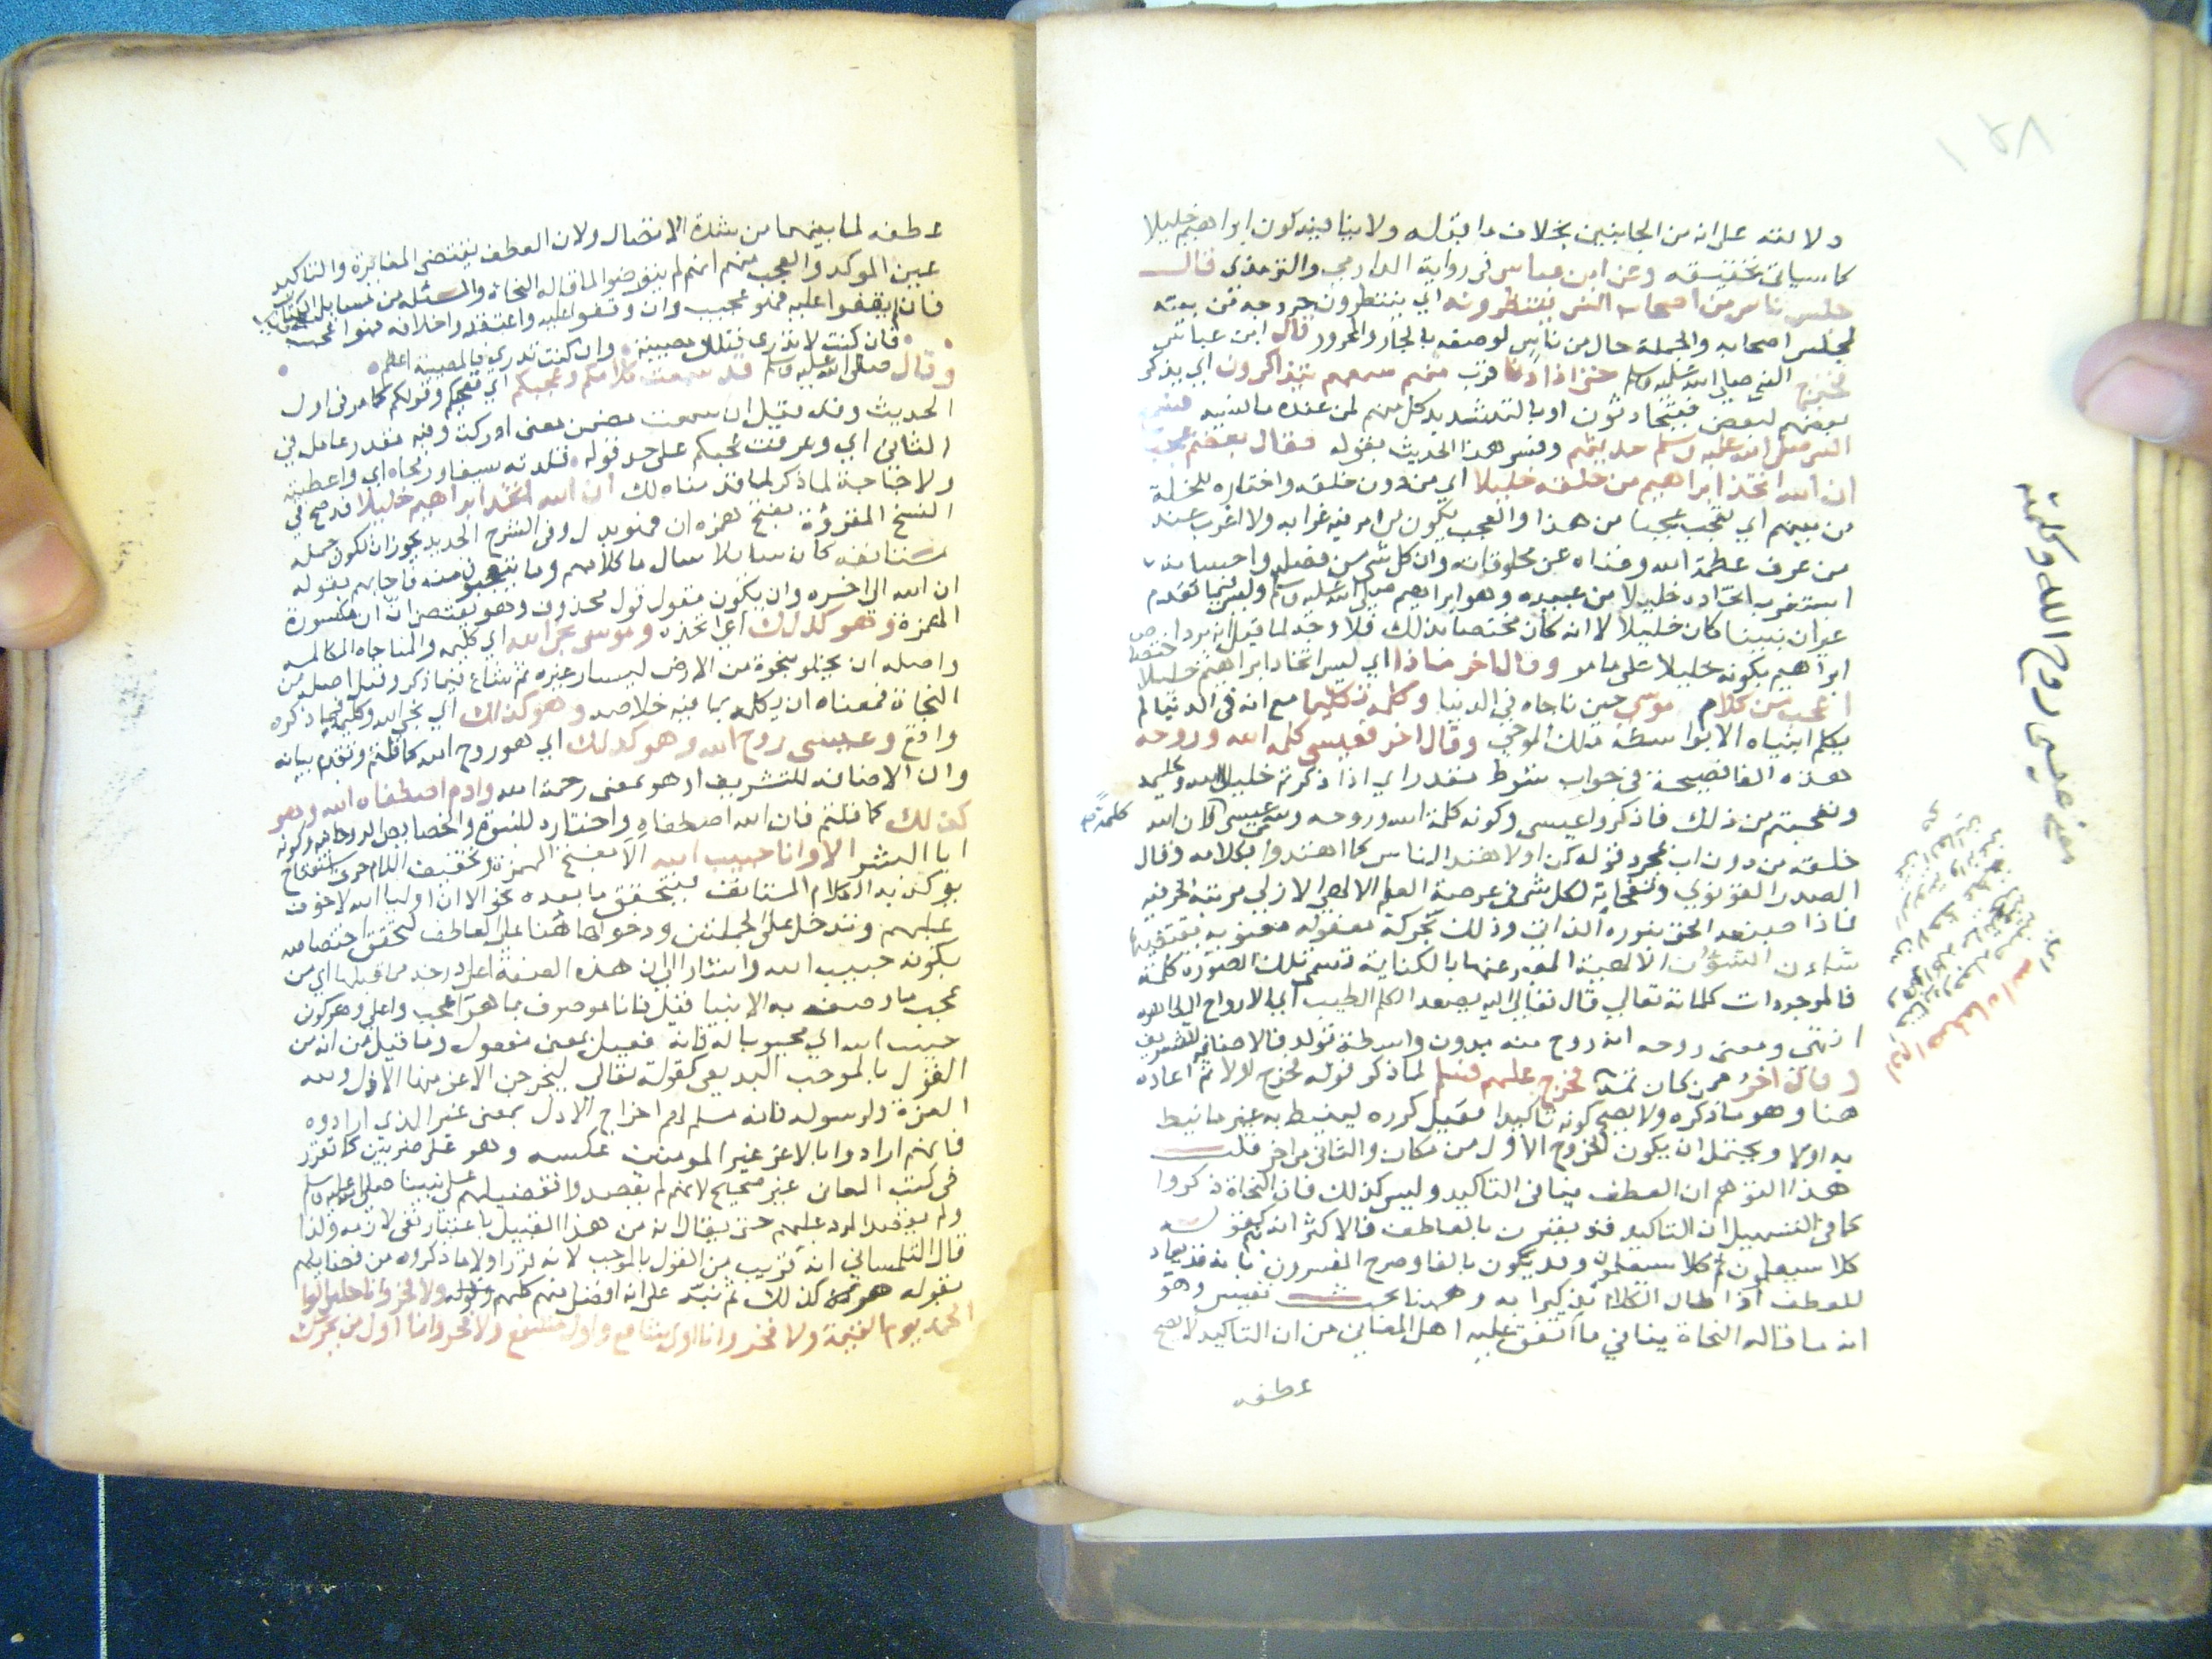 ١٣٨
دلالته على انه من الجانبين بخلاف ما قبله ولا ينافيه كون ابراهيم خليلا
كما سياتي تحقيقه وعن ابن عباس في رواية الدارمي والترمذي قال
جلس ناس من اصحاب النبي ينتظرونه اي ينتظرون خروجه من بيته
لمجلس اصحابه والجملة حال من ناس لوصفه بالجار والمجرور قال ابن عباس
فخرج النبي صلى الله عليه وسلم حتى اذا دنا قرب منهم سمعهم يتذاكرون اي يذكر
بعضهم لبعض فيتحادثون او بالتشديد كل منهم لمن عنده ما نسيه فسمع
النبي صلى الله عليه وسلم حديثهم وفسر هذا الحديث بقوله فقال بعضهم عجبا
ان الله اتخذ ابراهيم من خلقه خليلا اي من دون خلقه واختاره للخلة
من بينهم اي تعجب عجبا من هذا والعجب يكون من امر فيه غرابه ولا اغرب عند
من عرف عظمة الله وغناه عن مخلوقاته وان كل شي من فضله واحسانه
استغرب اتخاذه خليلا من عبيده وهو ابراهيم صلى الله عليه وسلم وليس فيما تقدم
عن ان نبينا كان خليلا لا انه كان مختصا بذلك فلا وجه لما قيل انه يرد اختصاص
ابراهيم بكونه خليلا على ما مر وقال اخر ماذا اي ليس اتخاذ ابراهيم خليلا
اعجب من كلام موسى حين ناجاه في الدنيا وكلمه تكليما مع انه في الدنيا لم
يكلم انبياه الا بواسطة ملك الوحي وقال اخر فعيسى كلمة الله وروحه
هذه الفا فصيحة في جواب شرط مقدر اي اذا ذكرتم خليل الله وكليمه
وتعجبتم من ذلك فاذكروا عيسى وكونه كلمة الله وروحه وسمي عيسى كلمة لان الله
خلقه من دون اب بمجرد قوله كن اولا هتدا الناس كما اهتدوا بكلامه وقال
الصدر القونوي ولنفحاته لكل شي في عرصة العلم الالهي الازلي مرتبة الحرفيه
فاذا صبغه الحق بنوره الذاتي وذلك بحركة معقوله معنويه يقتضيها
شان من الشؤون الالهية المعبر عنها بالكناية تسمى تلك الصورة كلمة
فالموجودات كلماته تعالى قال تعالى اليه يصعد الكلم الطيب اي الارواح الطاهره
انتهى ومعنى روحه انه روح منه بدون واسطة تولد فالاضافة للتشريف
وقال اخر ممن كان ثمة فخرج عليهم فسلم لما ذكر قوله فخرج اولا ثم اعاده
هنا وهو ما ذكره ولا يصح كونه تاكيدا فقيل كرره لينيط به غير ما نيط
به اولا ويحتمل ان يكون الخروج الاول من مكان والثاني من اخر قلت
هذا التوهم ان العطف ينافي التاكيد وليس كذلك فان النحاة ذكروا
كما في التسهيل ان التاكيد قد يقترن بالعاطف فالاكثر انه ثم كقوله
كلا سيعلمون ثم كلا سيعلمون وقد يكون بالفا وصرح المفسرون بانه قد يعاد
للعطف اذا طال الكلام تذكيرا به وهنا بحث نفيس وهو
انه ما قاله النحاة ينافي ما اتفق عليه اهل المعاني من ان التاكيد لا يصح
عطفه
معنى عيسى روح الله وكلمته
عطفه لما بينهما من شدة الاتصال ولان العطف يقتضي المغايرة والتاكيد
عين الموكد والعجب منهم انهم لم يتعرضوا لما قاله النحاة والمسئله من مسايل الكتاب
فان لم يقفوا عليه فهو عجيب وان وقفوا عليه واعتقدوا خلافه فهو اعجب
فان كنت لا تدري فتلك مصيبة وان كنت تدري فالمصيبة اعظم
وقال صلى الله عليه وسلم قد سمعت كلامكم وعجبكم اي تعجبكم وقولكم كما مر في اول
الحديث وقد قيل ان سمعت مضمن معنى ادركت وفيه مقدر عامل في
الثاني اي وعرفت عجبكم على حد قوله قلدته سيفا ورمحا اي واعطيته
ولا حاجة لما ذكر لما قدمناه لك ان الله اتخذ ابراهيم خليلا قد صح في
النسخ المقروة بفتح همزه ان فهو بدل وفي الشرح الجديد يجوز ان تكون جمله
مستانفه كان سايلا سال ما كلامهم وما يتعجبون منه فاجابهم بقوله
ان الله الى اخره وان يكون مقول قول محذوف وهو يقتضي ان ان مكسورة
الهمزة وهو كذلك اي اتخذه وموسى نجي الله اي كليمه والمناجاه المكالمه
واصله ان يخلو بنجوة من الارض ليسار غيره ثم شاع فيما ذكر وقيل اصله من
النجاة فمعناه ان يكلمه بما فيه خلاصه وهو كذلك اي نجي الله وكليمه فما ذكره
واقع وعيسى روح الله وهو كذلك اي هو روح الله كما قلتم وتقدم بيانه
وان الاضافه للتشريف او هو بمعنى رحمة الله وادم اصطفاه الله وهو
كذلك كما قلتم فان الله اصطفاه واختاره للنبوة والخصايص الروحانيه وكونه
ابا البشر الا وانا حبيب الله الا بفتح الهمزة وتخفيف اللام حرف استفتاح
يوكد به الكلام المستانف ليتحقق ما بعده نحو الا ان اوليا الله لا خوف
عليهم وتدخل على الجملتين ودخولها هنا على العاطف لتحقق اختصاصه
بكونه حبيب الله واشار الى ان هذه الصفة اعلى درجة مما قبلها اي من
عجب ما وصف به الانبيا قبل فانا موصوف بما هو اعجب واعلى وهو كون
حبيب الله اي محبوبا له فانه فعيل بمعنى مفعول وما قيل من انه من
القول بالموجب البديعي كقوله تعالى ليخرجن الاعز منها الاذل ولله
العزة ولرسوله فانه سلم لهم اخراج الاذل بمعنى غير الذي ارادوه
فانهم ارادوا بالاعز غير المومنين عكسه وهو على ضربين كما تقرر
في كتب المعاني غير صحيح لانهم لم يقصدوا تفضيلهم على نبينا صلى الله عليه وسلم
ولم يقصد الرد عليهم حتى يقال انه من هذا القبيل باعتبار نفي لازمه ولذا
قال التلمساني انه قريب من القول بالموجب لانه قرر اولا ما ذكروه من فضايلهم
بقوله هو كذلك ثم نبه على انه افضل منهم كلهم بقوله ولا فخر وانا حامل لوا
الحمد يوم القيمة ولا فخر وانا اول شافع واول مشفع ولا فخر وانا اول من يحرك